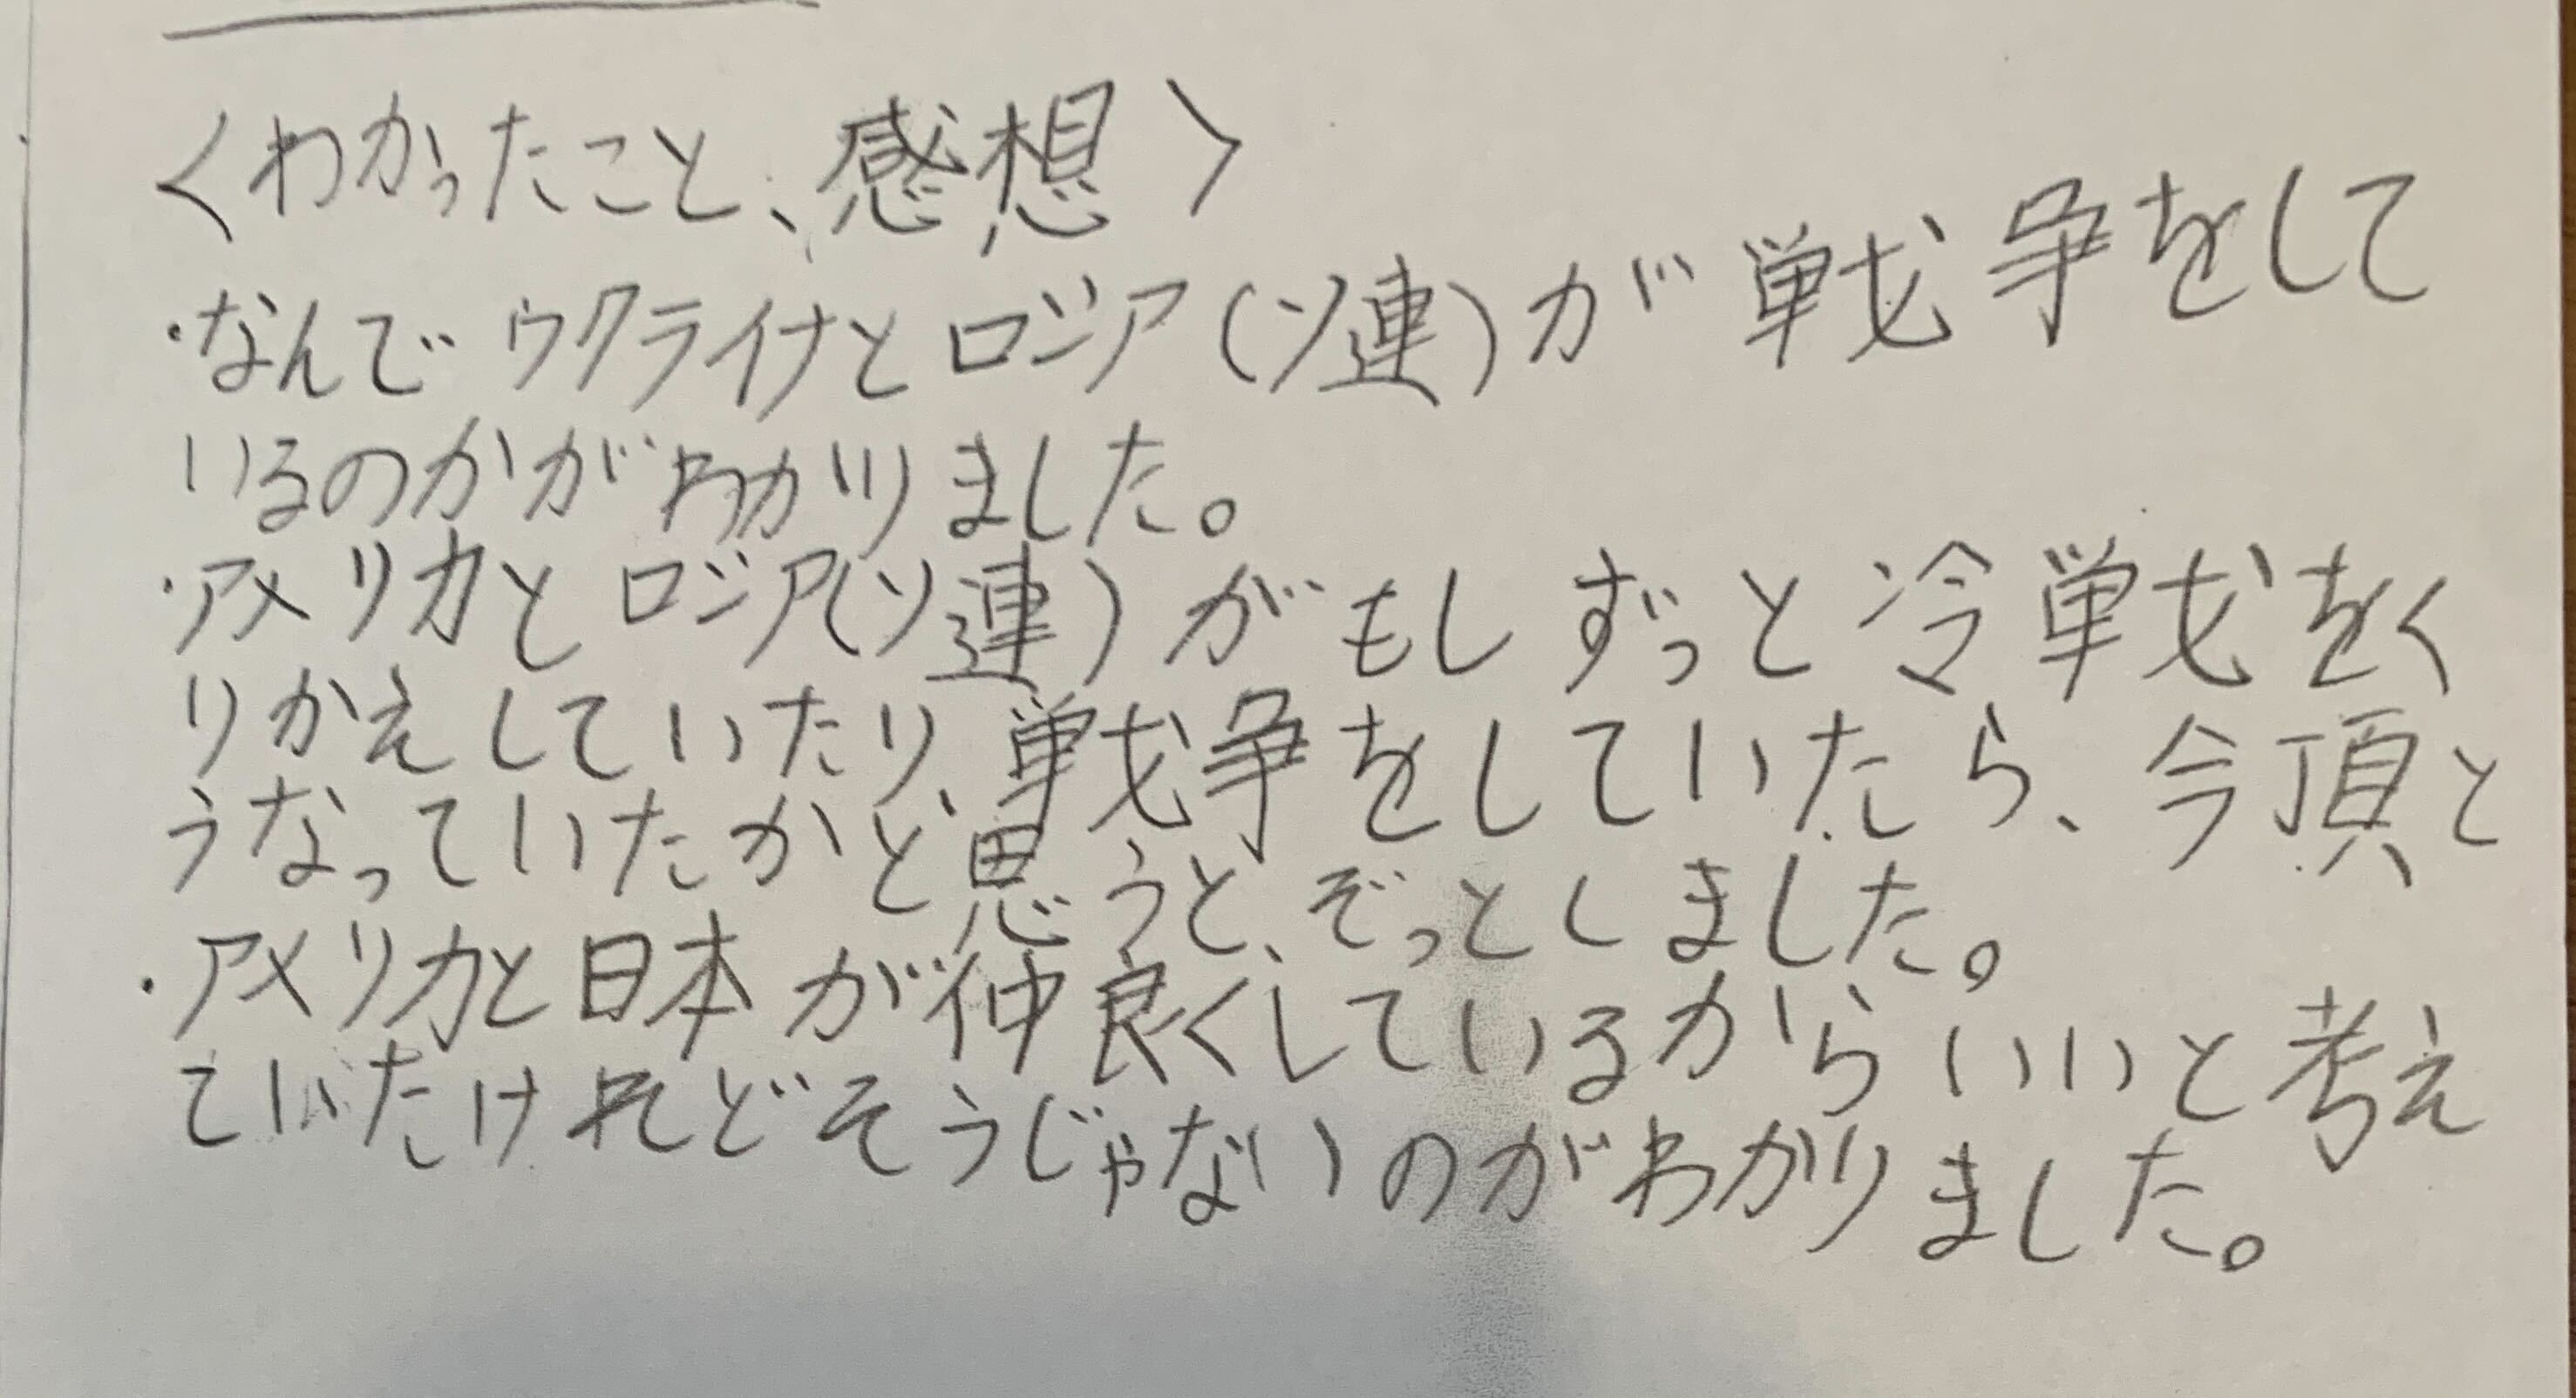 〈わかったこと、感想〉
・なんでウクライナとロシア(ソ連)が戦争をして
いるのかがわかりました。
・アメリカとロシア(ソ連)がもしずっと冷戦をく
りかえしていたり、戦争をしていたら、今頂と
うなっていたかと思うと、ぞっとしました。
・アメリカと日本が仲良くしているからいいと考え
ていたけれどそうじゃないのがわかりました。